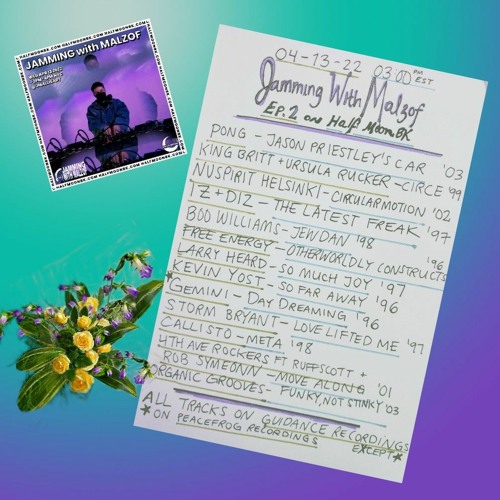 HALFMOONBK.COM HALFMOONBK.COM HALFMOONBK.COM
JAMMING with MALZOF
JAMMING
WITH MALZOF
04-13-22 03:00 PM EST
Jamming With Malzof
Ep. 2 on Half Moon BK
PONG - JASON PRIESTLEY'S CAR '03
KING BRITT + URSULA RUCKER - CIRCE '99
NUSPIRIT HELSINKI - CIRCULAR MOTION '02
TZ + DIZ - THE LATEST FREAK '97
BOO WILLIAMS - JEWDAN '98
FREE ENERGY - OTHERWORLDLY CONSTRUCTS '96
LARRY HEARD - SO MUCH JOY '97
KEVIN YOST - SO FAR AWAY '96
*GEMINI - DAY DREAMING '96
STORM BRYANT - LOVE LIFTED ME '97
CALLISTO - META '98
4TH AVE ROCKERS FT RUFFSCOTT +
ROB SYMEONN - MOVE ALONG '01
ORGANIC GROOVES - FUNKY, NOT STINKY '03
ALL TRACKS ON GUIDANCE RECORDINGS
EXCEPT *
* ON PEACEFROG RECORDINGS